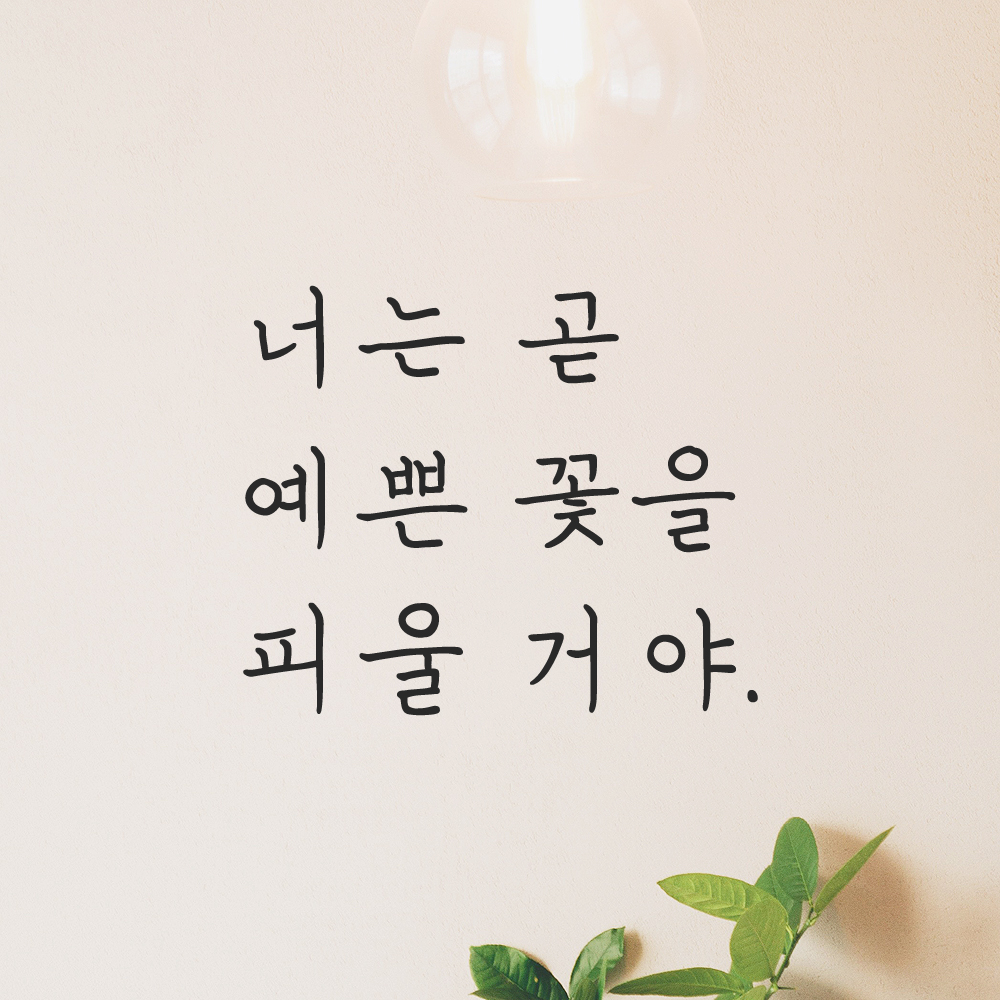 너는 곧
예쁜 꽃을
피울 거야.